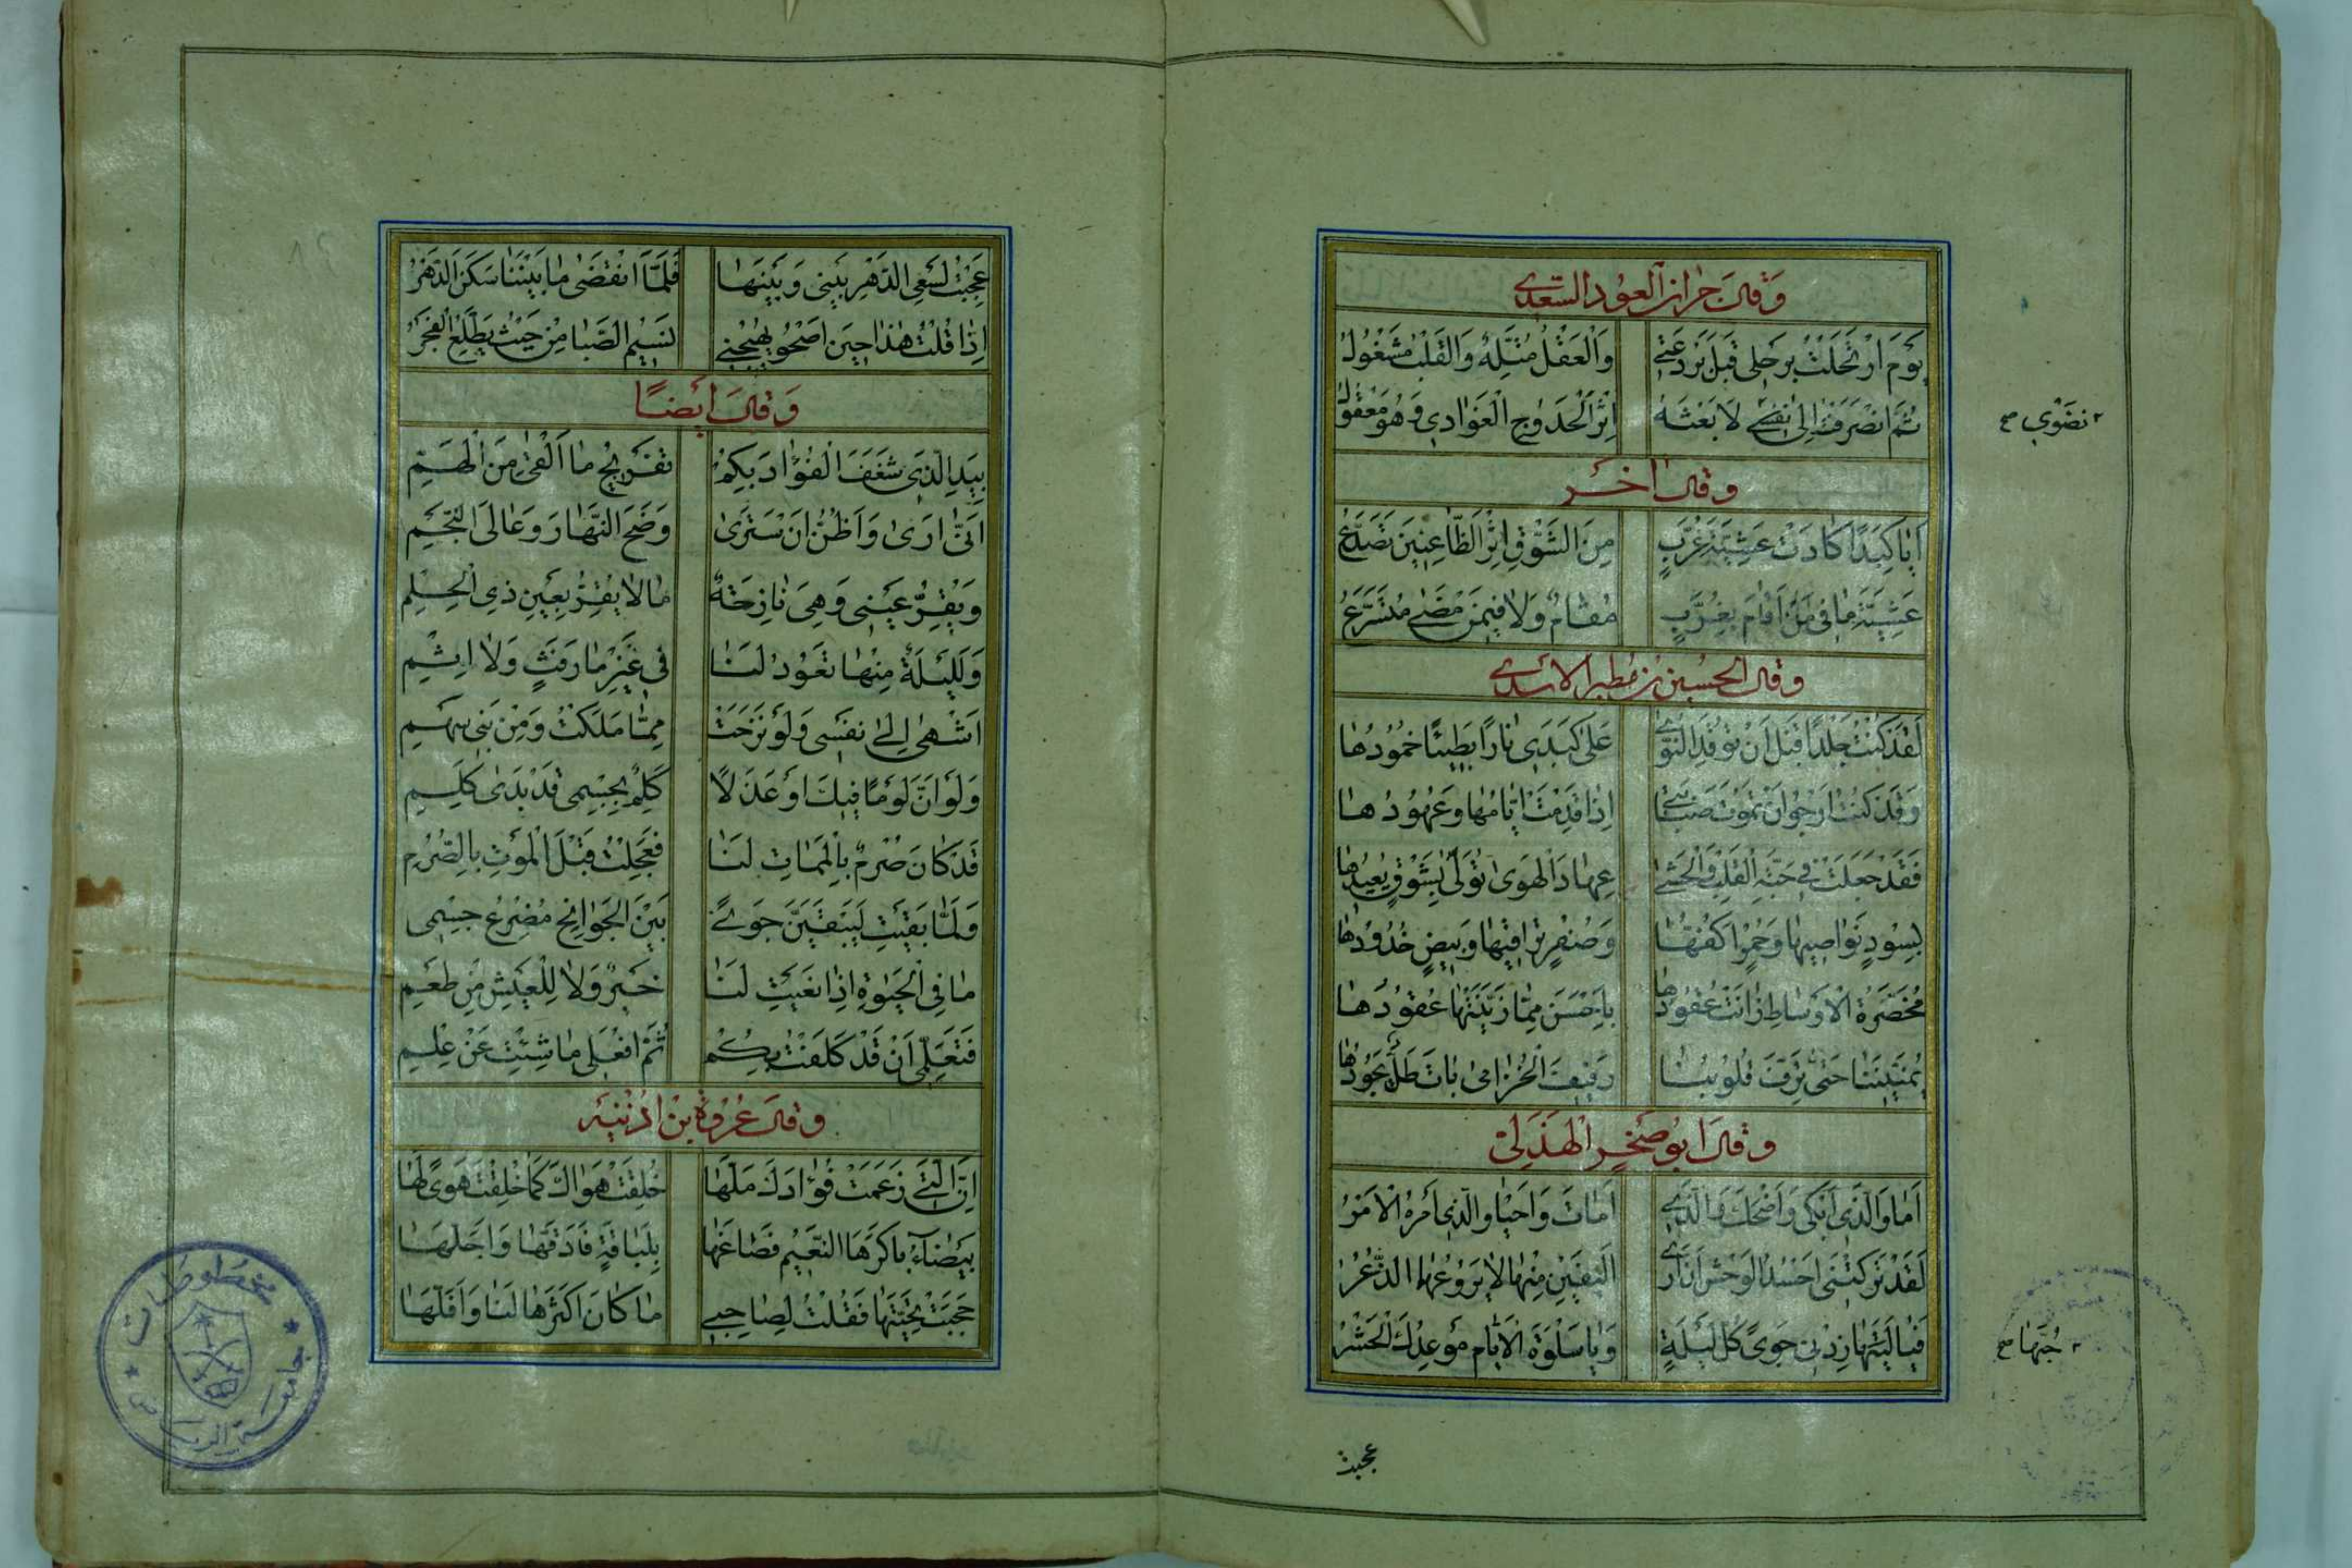 وَقَالَ جِرَانُ الْعَوْدِ السَّعْدِي
يَوْمَ ارْتَحَلْتُ بِرَحْلِى قَبْلَ بَرْدَعَتِى وَالْعَقْلُ مُتَّلِهٌ وَالْقَلْبُ مَشْغُولُ
ثُمَّ انْصَرَفْتُ اِلىٰ نِضْوِي لِاَبْعَثَهُ اِثْرَ الْحُدُوجِ الْغَوَادِي وَهُوَ مَعْقُولُ
نِضْوِي صح
وَقَالَ اٰخَرُ
اَيَا كَبِدًا كَادَتْ عَشِيَّةَ غُرَّبٍ مِنَ الشَّوْقِ اِثْرَ الظَّاعِنِينَ تَصَدَّعُ
عَشِيَّةَ مَا فِى مَنْ اَقَامَ بِغُرَّبٍ مُقَامٌ وَلَا فِيمَنْ مَضٰى مُتَسَرَّعُ
وَقَالَ الْحُسَيْنُ بْنُ مُطَيْرٍ الْاَسَدِي
لَقَدْ كُنْتُ جَلْدًا قَبْلَ اَنْ تُوقِدَ النَّوٰى عَلٰى كَبِدِى نَارًا بَطِيئًا خُمُودُهَا
وَقَدْ كُنْتُ اَرْجُو اَنْ تَمُوتَ صَبَابَتِى اِذَا قَدِمَتْ اَيَّامُهَا وَعُهُودُهَا
فَقَدْ جَعَلَتْ فِى حَبَّةِ الْقَلْبِ وَالْحَشٰى عِهَادَ الْهَوٰى تُوَلّٰى بِشَوْقٍ يُعِيدُهَا
بِسُودٍ نَوَاصِيهَا وَحُمْرٍ اَكُفُّهَا وَصُفْرٍ تَرَاقِيهَا وَبِيضٍ خُدُودُهَا
مُخَصَّرَةُ الْاَوْسَاطِ زَانَتْ عُقُودَهَا بِاَحْسَنَ مِمَّا زَيَّنَتْهَا عُقُودُهَا
يُمَنِّينَنَا حَتّٰى تَرِفَّ قُلُوبُنَا رَفِيفَ الْخُزَامٰى بَاتَ طَلٌّ يَجُودُهَا
وَقَالَ اَبُو صَخْرٍ الْهُذَلِى
اَمَا وَالَّذِى اَبْكٰى وَاَضْحَكَ وَالَّذِى اَمَاتَ وَاَحْيَا وَالَّذِى اَمْرُهُ الْاَمْرُ
لَقَدْ تَرَكَتْنِى اَحْسُدُ الْوَحْشَ اَنْ اَرٰى اَلِيفَيْنِ مِنْهَا لَا يَرُوعُهُمَا الذُّعْرُ
فَيَا لَيْتَهَا زِدْنِى جَوًى كُلَّ لَيْلَةٍ وَيَا سَلْوَةَ الْاَيَّامِ مَوْعِدُكِ الْحَشْرُ
حُبَّهَا صح
عجبت
عَجِبْتُ لِسَعْىِ الدَّهْرِ بَيْنِى وَبَيْنَهَا فَلَمَّا انْقَضٰى مَا بَيْنَنَا سَكَنَ الدَّهْرُ
اِذَا قُلْتُ هٰذَا حِينَ اَصْحُو يُهِيجُنِى نَسِيمُ الصَّبَا مِنْ حَيْثُ يَطَّلِعُ الْفَجْرُ
وَقَالَ اَيْضًا
بِيَدِ الَّذِى شَغَفَ الْفُؤَادَ بِكُمْ تَفْرِيجُ مَا اَلْقٰى مِنَ الْهَمِّ
اَنّٰى اَرٰى وَاَظُنُّ اَنْ سَتَرٰى وَضَحَ النَّهَارِ وَعَالِىَ النَّجْمِ
وَيُقِرُّ عَيْنِى وَهِىَ نَازِحَةٌ مَا لَا يُقِرُّ بِعَيْنِ ذِى الْحِلْمِ
وَلَلَيْلَةٌ مِنْهَا تَعُودُ لَنَا فِى غَيْرِ مَا رَفَثٍ وَلَا اِثْمِ
اَشْهٰى اِلىٰ نَفْسِى وَلَوْ نَزَحَتْ مِمَّا مَلَكْتُ وَمِنْ بَنِى سَهْمِ
وَلَوْ اَنَّ لَوْمًا فِيكَ اَوْ عَذَلًا كَلْمٌ بِجِسْمِى قَدْ بَدٰى كَلْمِى
قَدْ كَانَ صُرْمٌ بِالْمَمَاتِ لَنَا فَعَجِلْتِ قَبْلَ الْمَوْتِ بِالصُّرْمِ
وَلَمَّا بَقِيتِ لَيَبْقَيَنَّ جَوًى بَيْنَ الْجَوَانِحِ مُضْرِعٌ جِسْمِى
مَا فِى الْحَيٰوةِ اِذَا تَغَيَّبْتِ لَنَا خَيْرٌ وَلَا لِلْعَيْشِ مِنْ طَعْمِ
فَتَعَلَّمِى اَنْ قَدْ كَلِفْتُ بِكُمْ ثُمَّ افْعَلِى مَا شِئْتِ عَنْ عِلْمِ
وَقَالَ عُرْوَةُ بْنُ اُذَيْنَةَ
اِنَّ الَّتِى زَعَمَتْ فُؤَادَكَ مَلَّهَا خُلِقَتْ هَوَاكَ كَمَا خُلِقْتَ هَوًى لَهَا
بَيْضَاءُ بَاكَرَهَا النَّعِيمُ فَصَاغَهَا بِلَبَاقَةٍ فَاَدَقَّهَا وَاَجَلَّهَا
حَجَبَتْ تَحِيَّتَهَا فَقُلْتُ لِصَاحِبِى مَا كَانَ اَكْثَرَهَا لَنَا وَاَقَلَّهَا
مخطوطات
جامعة الرياض